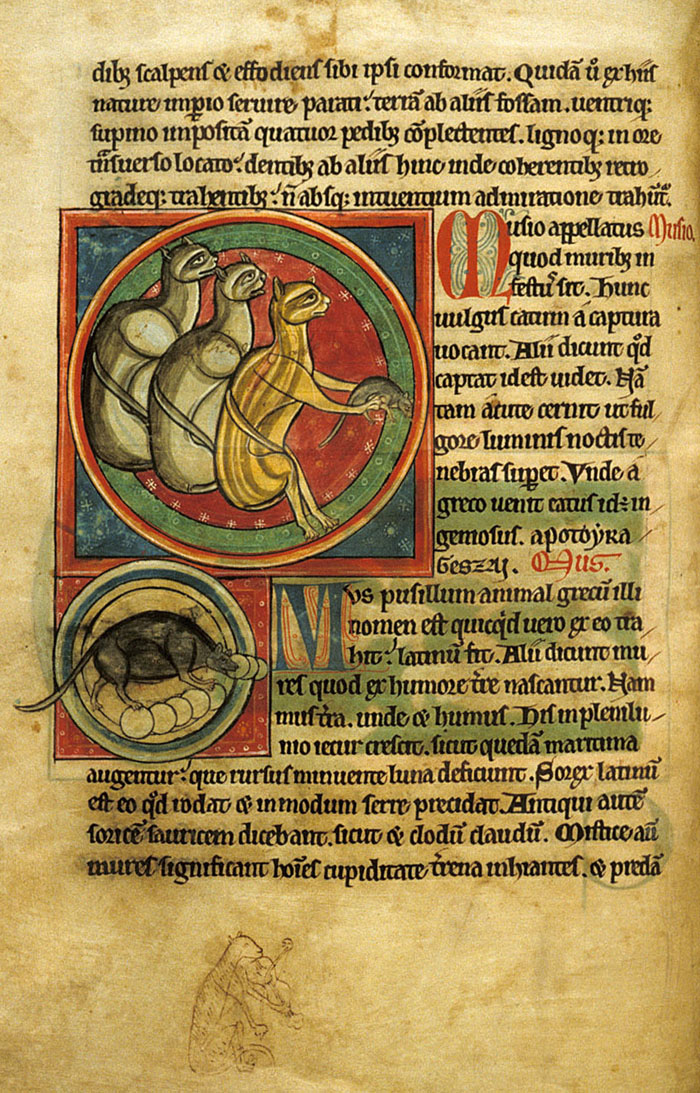 dibꝫ scalpens & effodiens sibi ipsi conformat. Quidā ů ex hiis
nature imꝑio seruire parati. terrā ab aliis fossam. uentriqꝫ
supino impositā quatuor pedibꝫ cōplectentes. lignoqꝫ in ore
tͣnsuerso locato. dentibꝫ ab aliis hinc inde coherentibꝫ retro
gradeqꝫ trahentibꝫ. n̄ absqꝫ intuentium admiratione trahūt̄.
Musio appellatus Musio.
quod muribꝫ in
festuſ sit. Hunc
uulgus catum a captura
uocant. Alii dicunt qd̄
captat id est uidet. Nā
tam acute cernit ut ful
gore luminis noctis te
nebras suꝑet. Vnde a
greco uenit catus id ē in
geniosus. apotoyka
geszaj. Mus.
Mus pusillum animal grecū illi
nomen est quicqͥd uero ex eo tra
hit. latinum fit. Alii dicunt mu
res quod ex humore t̄re nascantur. Nam
mus t̄ra. unde & humus. His in plenilu
nio iecur crescit. sicut quedā maritima
augentur. que rursus minuente luna deficiunt. Sorex latinū
est eo qd̄ rodat & in modum serre precidat. Antiqui autē
soricē sauricem dicebant. sicut & clodū claudū. Mistice aū
mures significant hoīes cupiditate t̄rena inhiantes. & predā